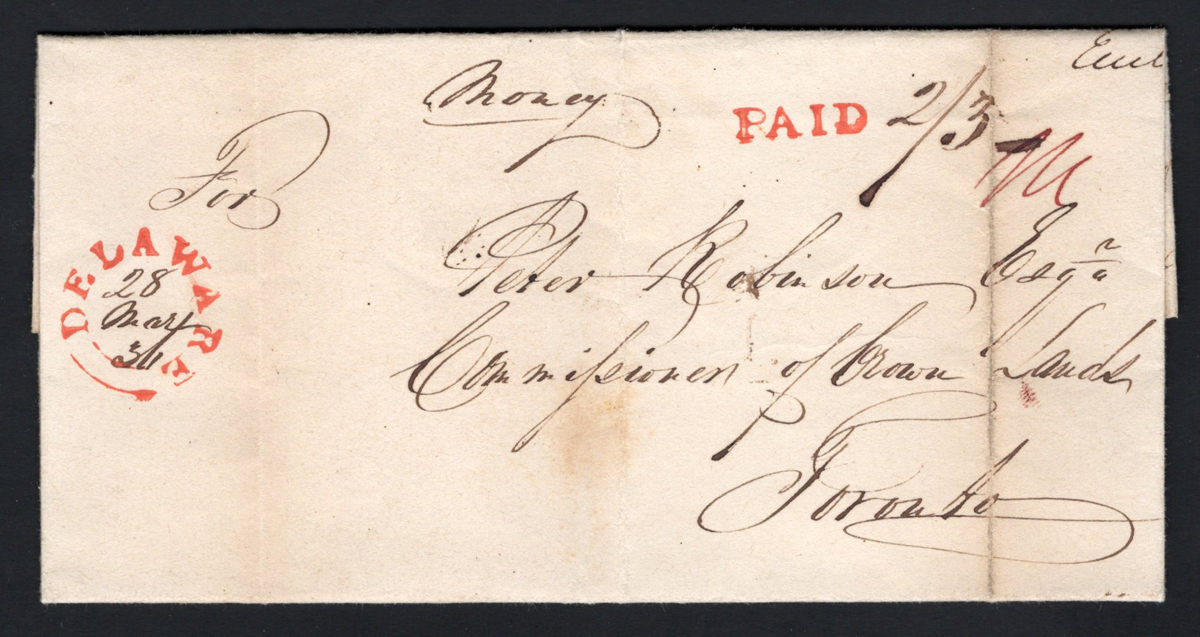 Money
PAID 2/3
For
DELAWARE
28
May
Peter Robinson Esqr
Commissioner of Crown Lands
Toronto